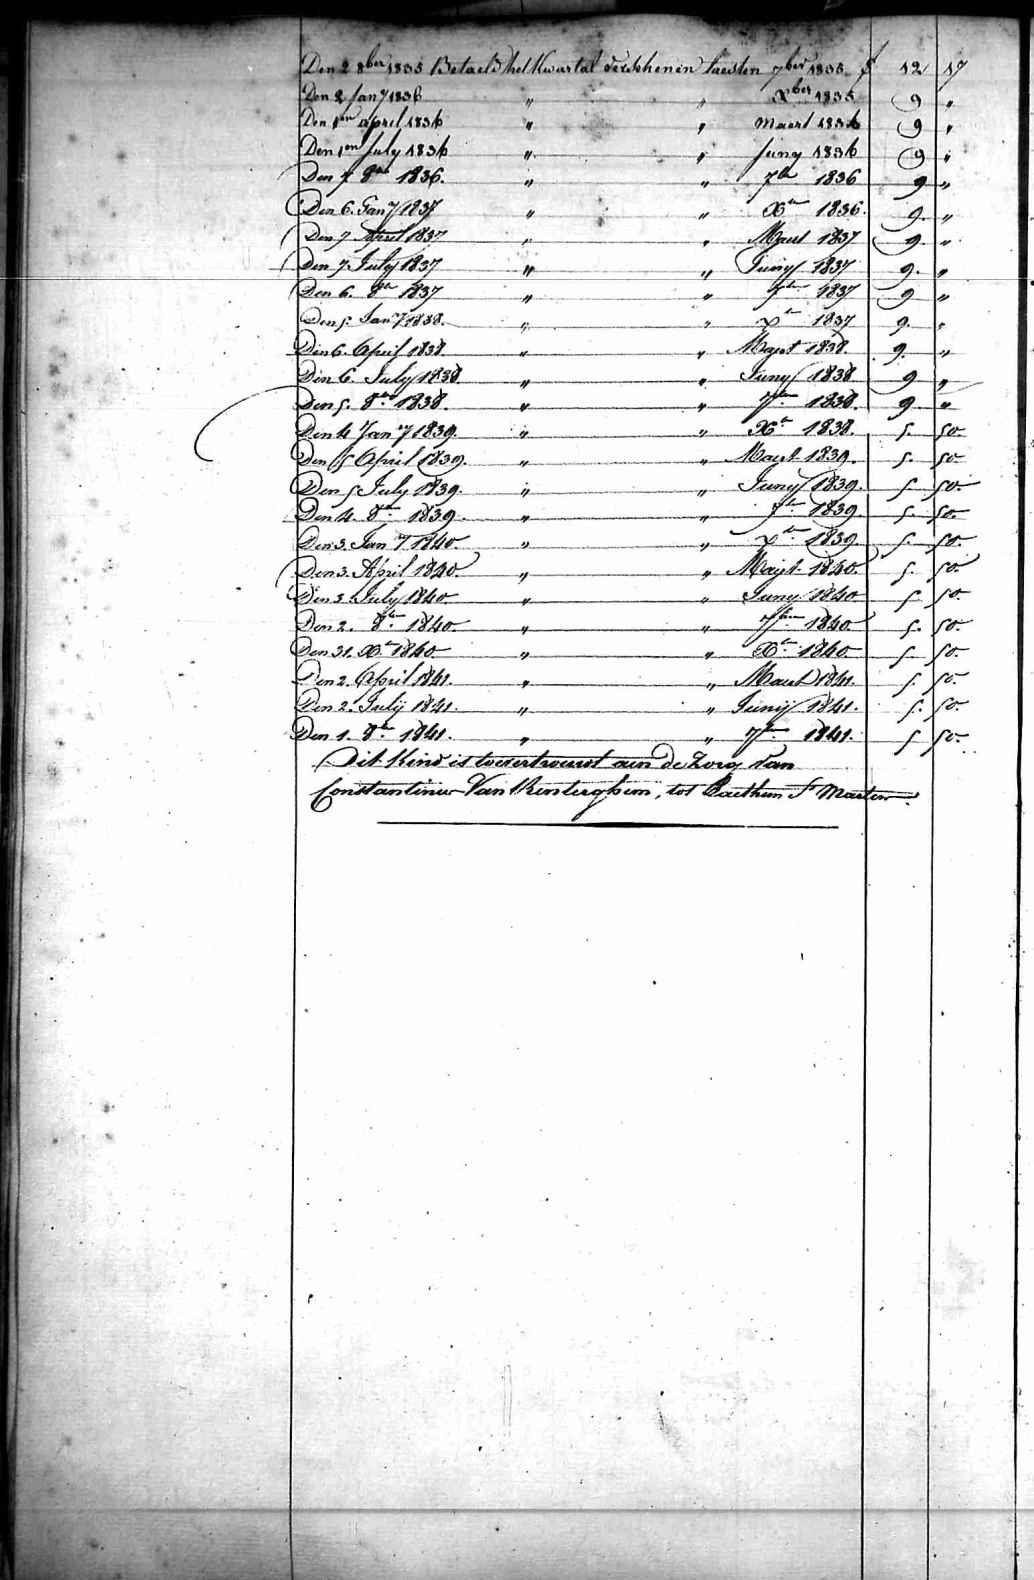 Den 2 8ber 1835 Betaeld het Kwartal verschenen laesten 7ber 1835 f 12 17
Den 2 Jany 1836 " " Xber 1835 9 "
Den 1en april 1836 " " Maert 1836 9 "
Den 1en July 1836 " " Juny 1836 9 "
Den 7 8er 1836. " " 7ber 1836 9 "
Den 6. Jany 1837 " " Xer 1836. 9. "
Den 7 April 1837 " " Maert 1837 9. "
Den 7. July 1837 " " Juny 1837 9. "
Den 6. 8er 1837 " " 7ber 1837 9 "
Den 5. Jany 1838. " " Xer 1837 9. "
Den 6. April 1838. " " Maert 1838. 9. "
Den 6. July 1838. " " Juny 1838 9 "
Den 5. 8er 1838. " " 7ber 1838. 9. "
Den 4 Jany 1839. " " Xer 1838. 5. 50.
Den 5 April 1839. " " Maert 1839. 5. 50.
Den 5 July 1839. " " Juny 1839. 5. 50.
Den 4. 8er 1839. " " 7ber 1839. 5. 50.
Den 3. Jany 1840. " " Xer 1839. 5. 50.
Den 3. April 1840. " " Maert 1840. 5. 50.
Den 3. July 1840. " " Juny 1840 5. 50.
Den 2. 8er 1840. " " 7ber 1840 5. 50.
Den 31. Xer 1840 " " Xer 1840 5. 50.
Den 2. April 1841. " " Maert 1841. 5. 50.
Den 2. Julij 1841. " " Junij 1841. 5. 50.
Den 1. 8er 1841. " " 7ber 1841. 5 50.
Dit Kind is toevertrouwt aen de Zorg van
Constantinus Van Renterghem, tot Laethem St Marten.